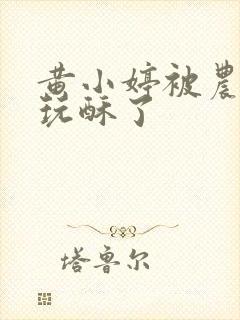 黄小婷被農
玩酥了
塔鲁尔